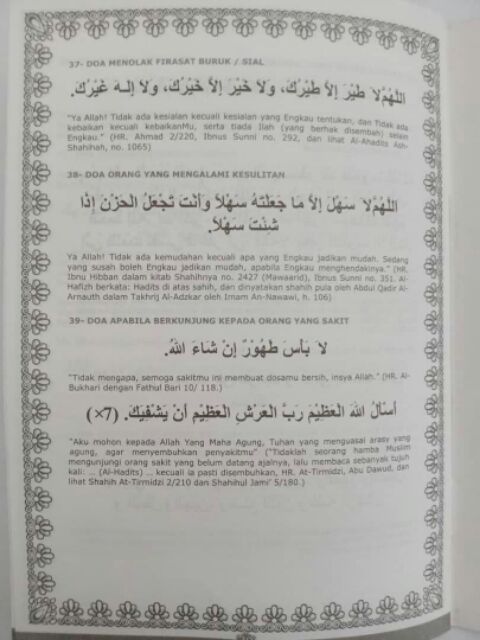 37- DOA MENOLAK FIRASAT BURUK / SIAL
اَللَّهُمَّ لاَ طَيْرَ إِلاَّ طَيْرُكَ، وَلاَ خَيْرَ إِلاَّ خَيْرُكَ، وَلاَ إِلَـهَ غَيْرُكَ.
"Ya Allah! Tidak ada kesialan kecuali kesialan yang Engkau tentukan, dan Tidak ada
kebaikan kecuali kebaikanMu, serta tiada Ilah (yang berhak disembah) selain
Engkau." (HR. Ahmad 2/220, Ibnus Sunni no. 292, dan lihat Al-Ahadits Ash-
Shahihah, no. 1065)
38- DOA ORANG YANG MENGALAMI KESULITAN
اَللَّهُمَّ لاَ سَهْلَ إِلاَّ مَا جَعَلْتَهُ سَهْلاً وَأَنْتَ تَجْعَلُ الْحَزْنَ إِذَا
شِئْتَ سَهْلاً.
Ya Allah! Tidak ada kemudahan kecuali apa yang Engkau jadikan mudah. Sedang
yang susah boleh Engkau jadikan mudah, apabila Engkau menghendakinya." (HR.
Ibnu Hibban dalam kitab Shahihnya no. 2427 (Mawaarid), Ibnus Sunni no. 351. Al-
Hafizh berkata: Hadits di atas sahih, dan dinyatakan shahih pula oleh Abdul Qadir Al-
Arnauth dalam Takhrij Al-Adzkar oleh Imam An-Nawawi, h. 106)
39- DOA APABILA BERKUNJUNG KEPADA ORANG YANG SAKIT
لاَ بَأْسَ طَهُوْرٌ إِنْ شَاءَ اللهُ.
"Tidak mengapa, semoga sakitmu ini membuat dosamu bersih, insya Allah." (HR. Al-
Bukhari dengan Fathul Bari 10/ 118.)
أَسْأَلُ اللهَ الْعَظِيْمَ رَبَّ الْعَرْشِ الْعَظِيْمِ أَنْ يَشْفِيَكَ. (7×)
"Aku mohon kepada Allah Yang Maha Agung, Tuhan yang menguasai arasy yang
agung, agar menyembuhkan penyakitmu" ("Tidaklah seorang hamba Muslim
mengunjungi orang sakit yang belum datang ajalnya, lalu membaca sebanyak tujuh
kali: ... (Al-Hadits) ... kecuali ia pasti disembuhkan, HR. At-Tirmidzi, Abu Dawud, dan
lihat Shahih At-Tirmidzi 2/210 dan Shahihul Jami' 5/180.)